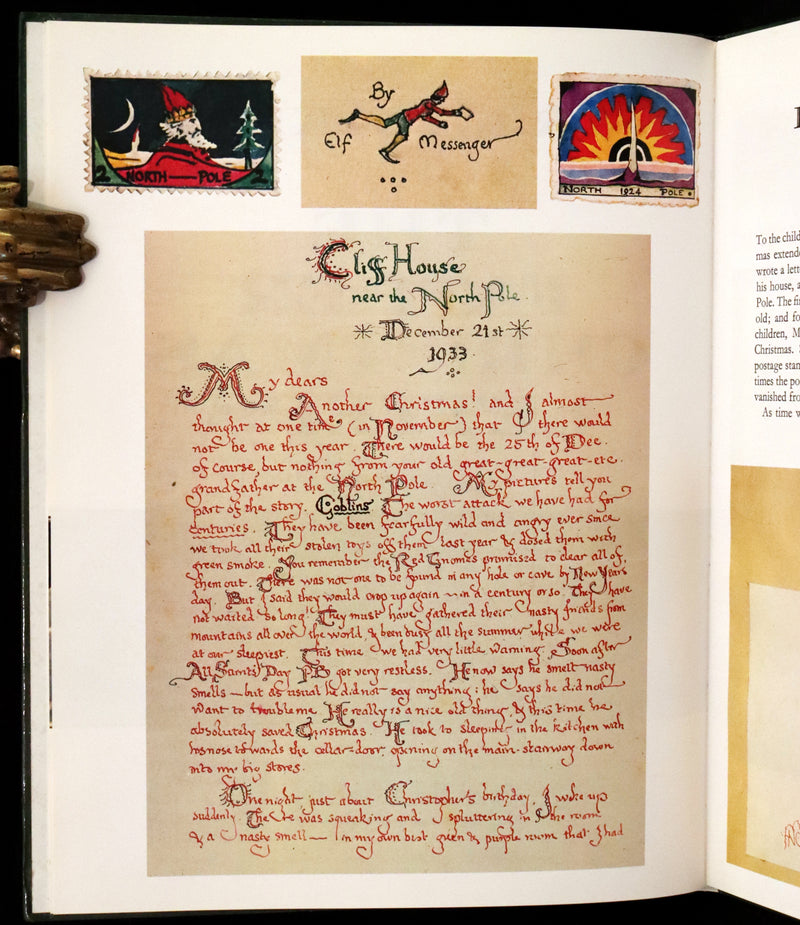 2 NORTH — POLE 2
By
Elf Messenger
NORTH 1924 POLE
Cliff House
near the North Pole
December 21st
1933
My dears
Another Christmas! and I almost
thought at one time (in November) that there would
not be one this year. There would be the 25th of Dec.
of course, but nothing from your old great-great-great-etc.
grandfather at the North Pole. My pictures tell you
part of the story. Goblins. The worst attack we have had for
centuries. They have been fearfully wild and angry ever since
we took all their stolen toys off them last year & dosed them with
green smoke. You remember the Red Gnomes promised to clear all of
them out. There was not one to be found in any hole or cave by New Years
day. But I said they would crop up again — in a century or so. They have
not waited so long! They must have gathered their nasty friends from
mountains all over the world, & been busy all the summer while we were
at our sleepiest. This time we had very little warning. Soon after
All Saints' Day PB got very restless. He now says he smelt nasty
smells — but as usual he did not say anything: he says he did not
want to trouble me. He really is a nice old thing, & this time he
absolutely saved Christmas. He took to sleeping in the kitchen with
his nose towards the cellar-door, opening on the main-stairway down
into my big stores.
One night, just about Christopher's birthday, I woke up
suddenly. There was squeaking and spluttering in the room
& a nasty smell — in my own best green & purple room that I had
To the child
mas extend
wrote a lett
his house, a
Pole. The fi
old; and fo
children, M
Christmas.
postage stan
times the po
vanished fro
As time w